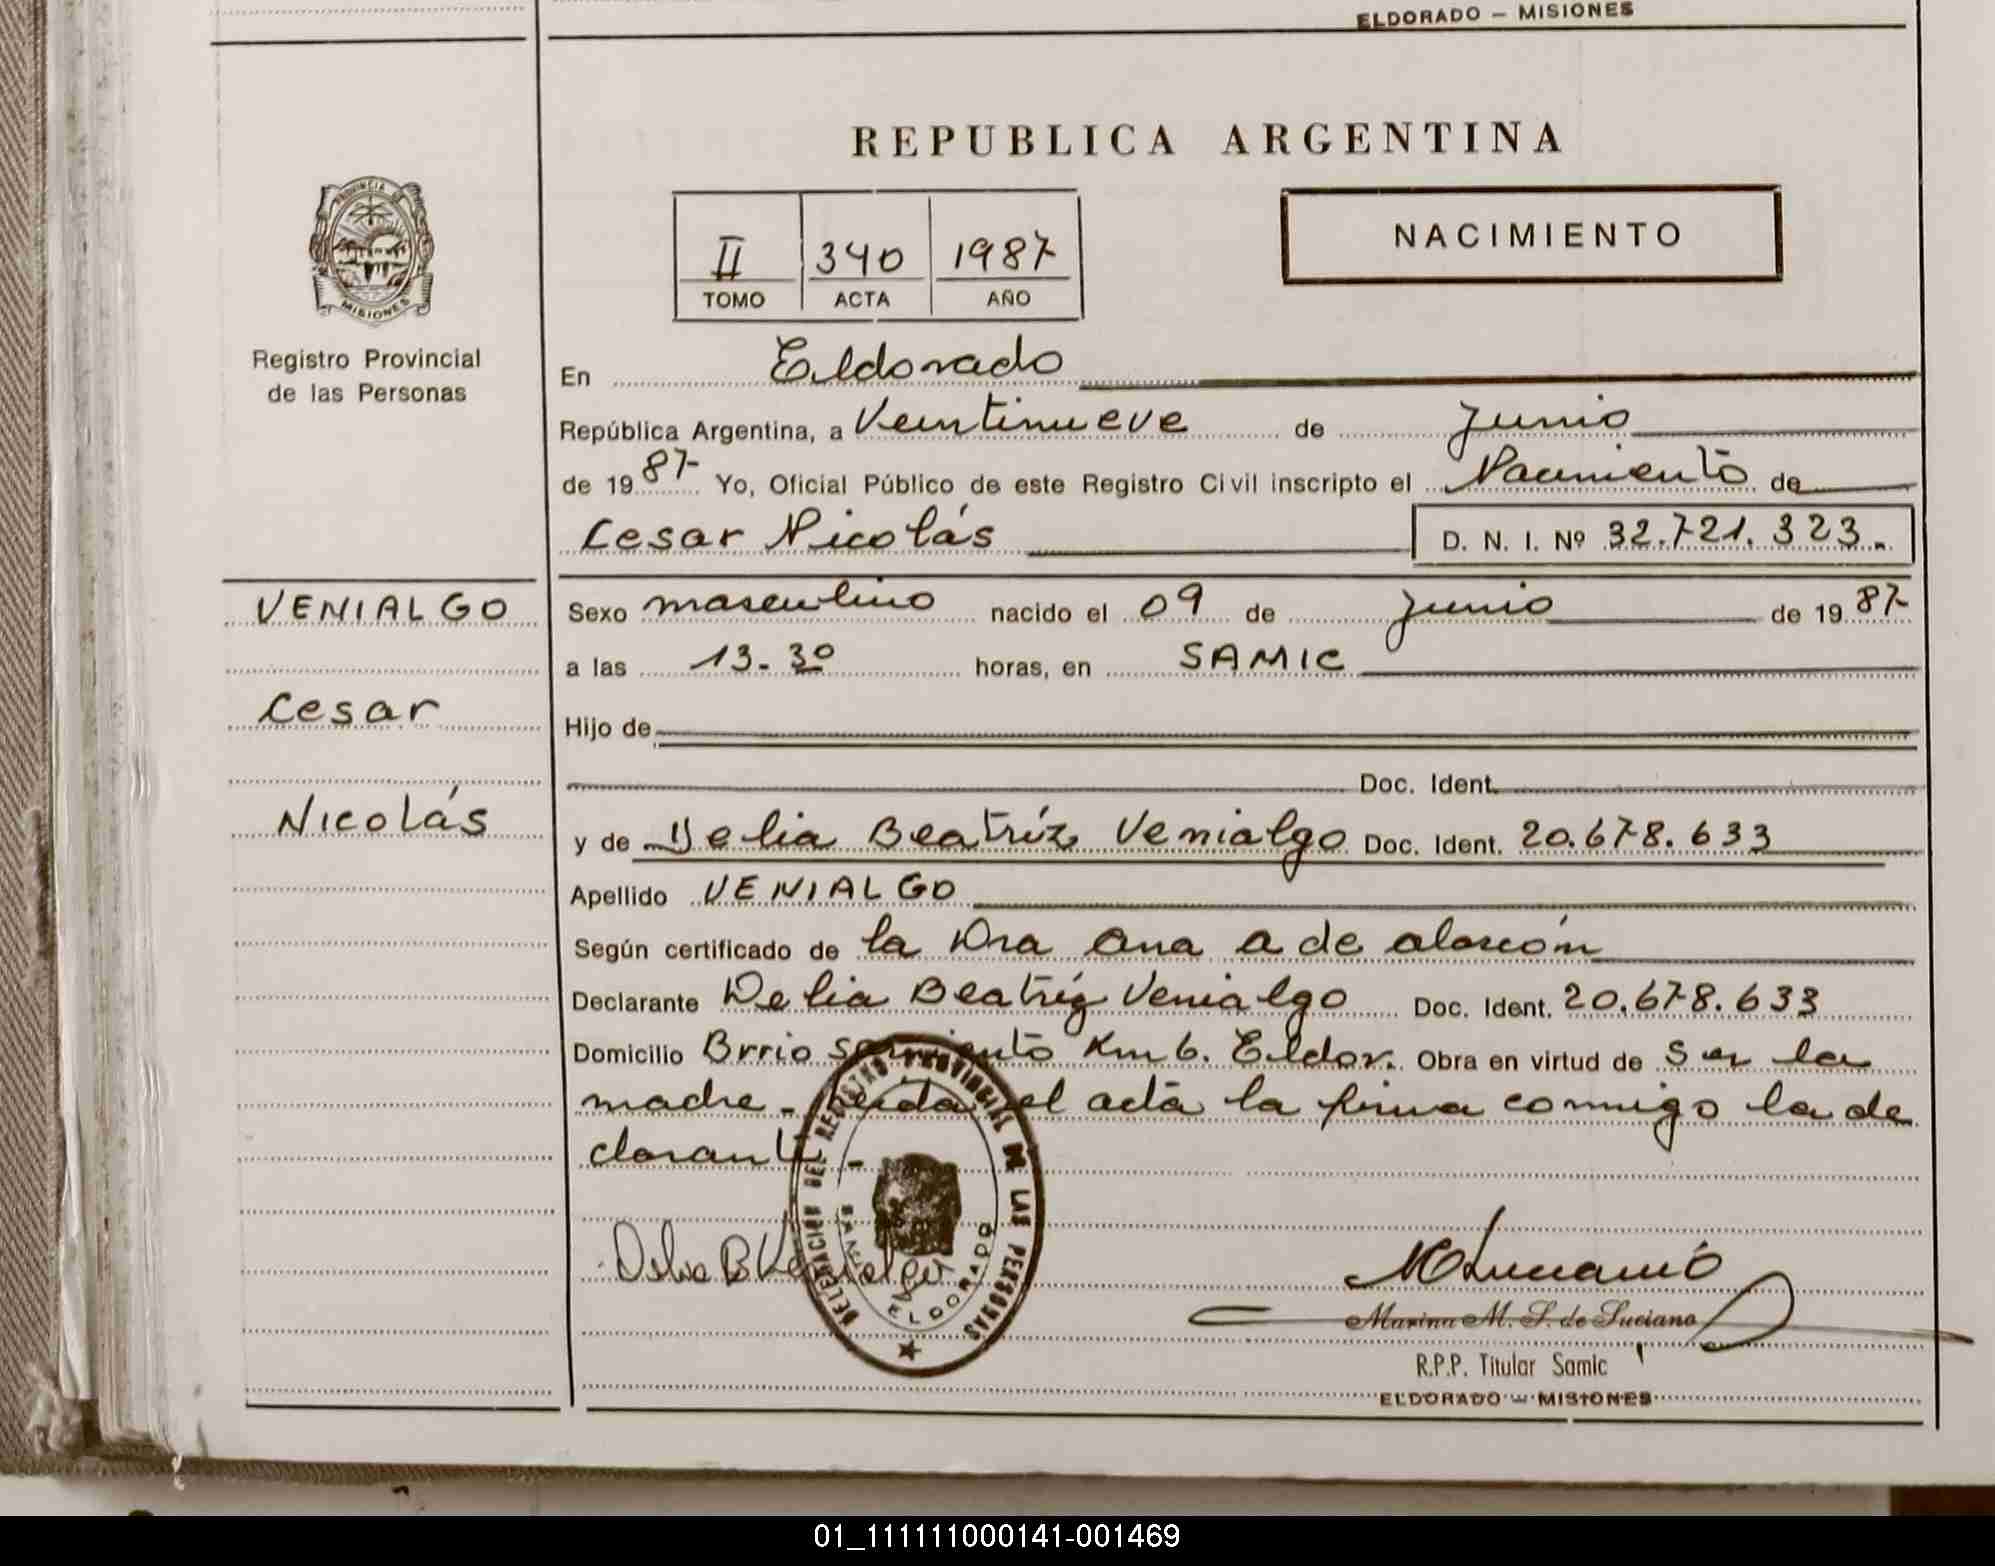 ELDORADO — MISIONES
REPUBLICA ARGENTINA
PROVINCIA DE
MISIONES
Registro Provincial
de las Personas
II 340 1987
TOMO ACTA AÑO
NACIMIENTO
En Eldorado
República Argentina, a Veintinueve de Junio
de 1987 Yo, Oficial Público de este Registro Civil inscripto el Nacimiento de
Cesar Nicolás D. N. I. Nº 32.721.323.-
VENIALGO
Cesar
Nicolás
Sexo masculino nacido el 09 de Junio de 1987
a las 13-30 horas, en SAMIC
Hijo de
Doc. Ident.
y de Delia Beatríz Venialgo Doc. Ident. 20.678.633
Apellido VENIALGO
Según certificado de la Dra Ana A de Alarcón
Declarante Delia Beatríz Venialgo Doc. Ident. 20.678.633
Domicilio Brrio Sarmiento Km 6. Eldor. Obra en virtud de Ser la
madre - Leída el acta la firma conmigo la de
clarante -
Delia B Venialgo
DELEGACION DEL REGISTRO PROVINCIAL DE LAS PERSONAS
ELDORADO
MLuciano
Marina M. S. de Luciano
R.P.P. Titular Samic
ELDORADO — MISIONES
01_111111000141-001469